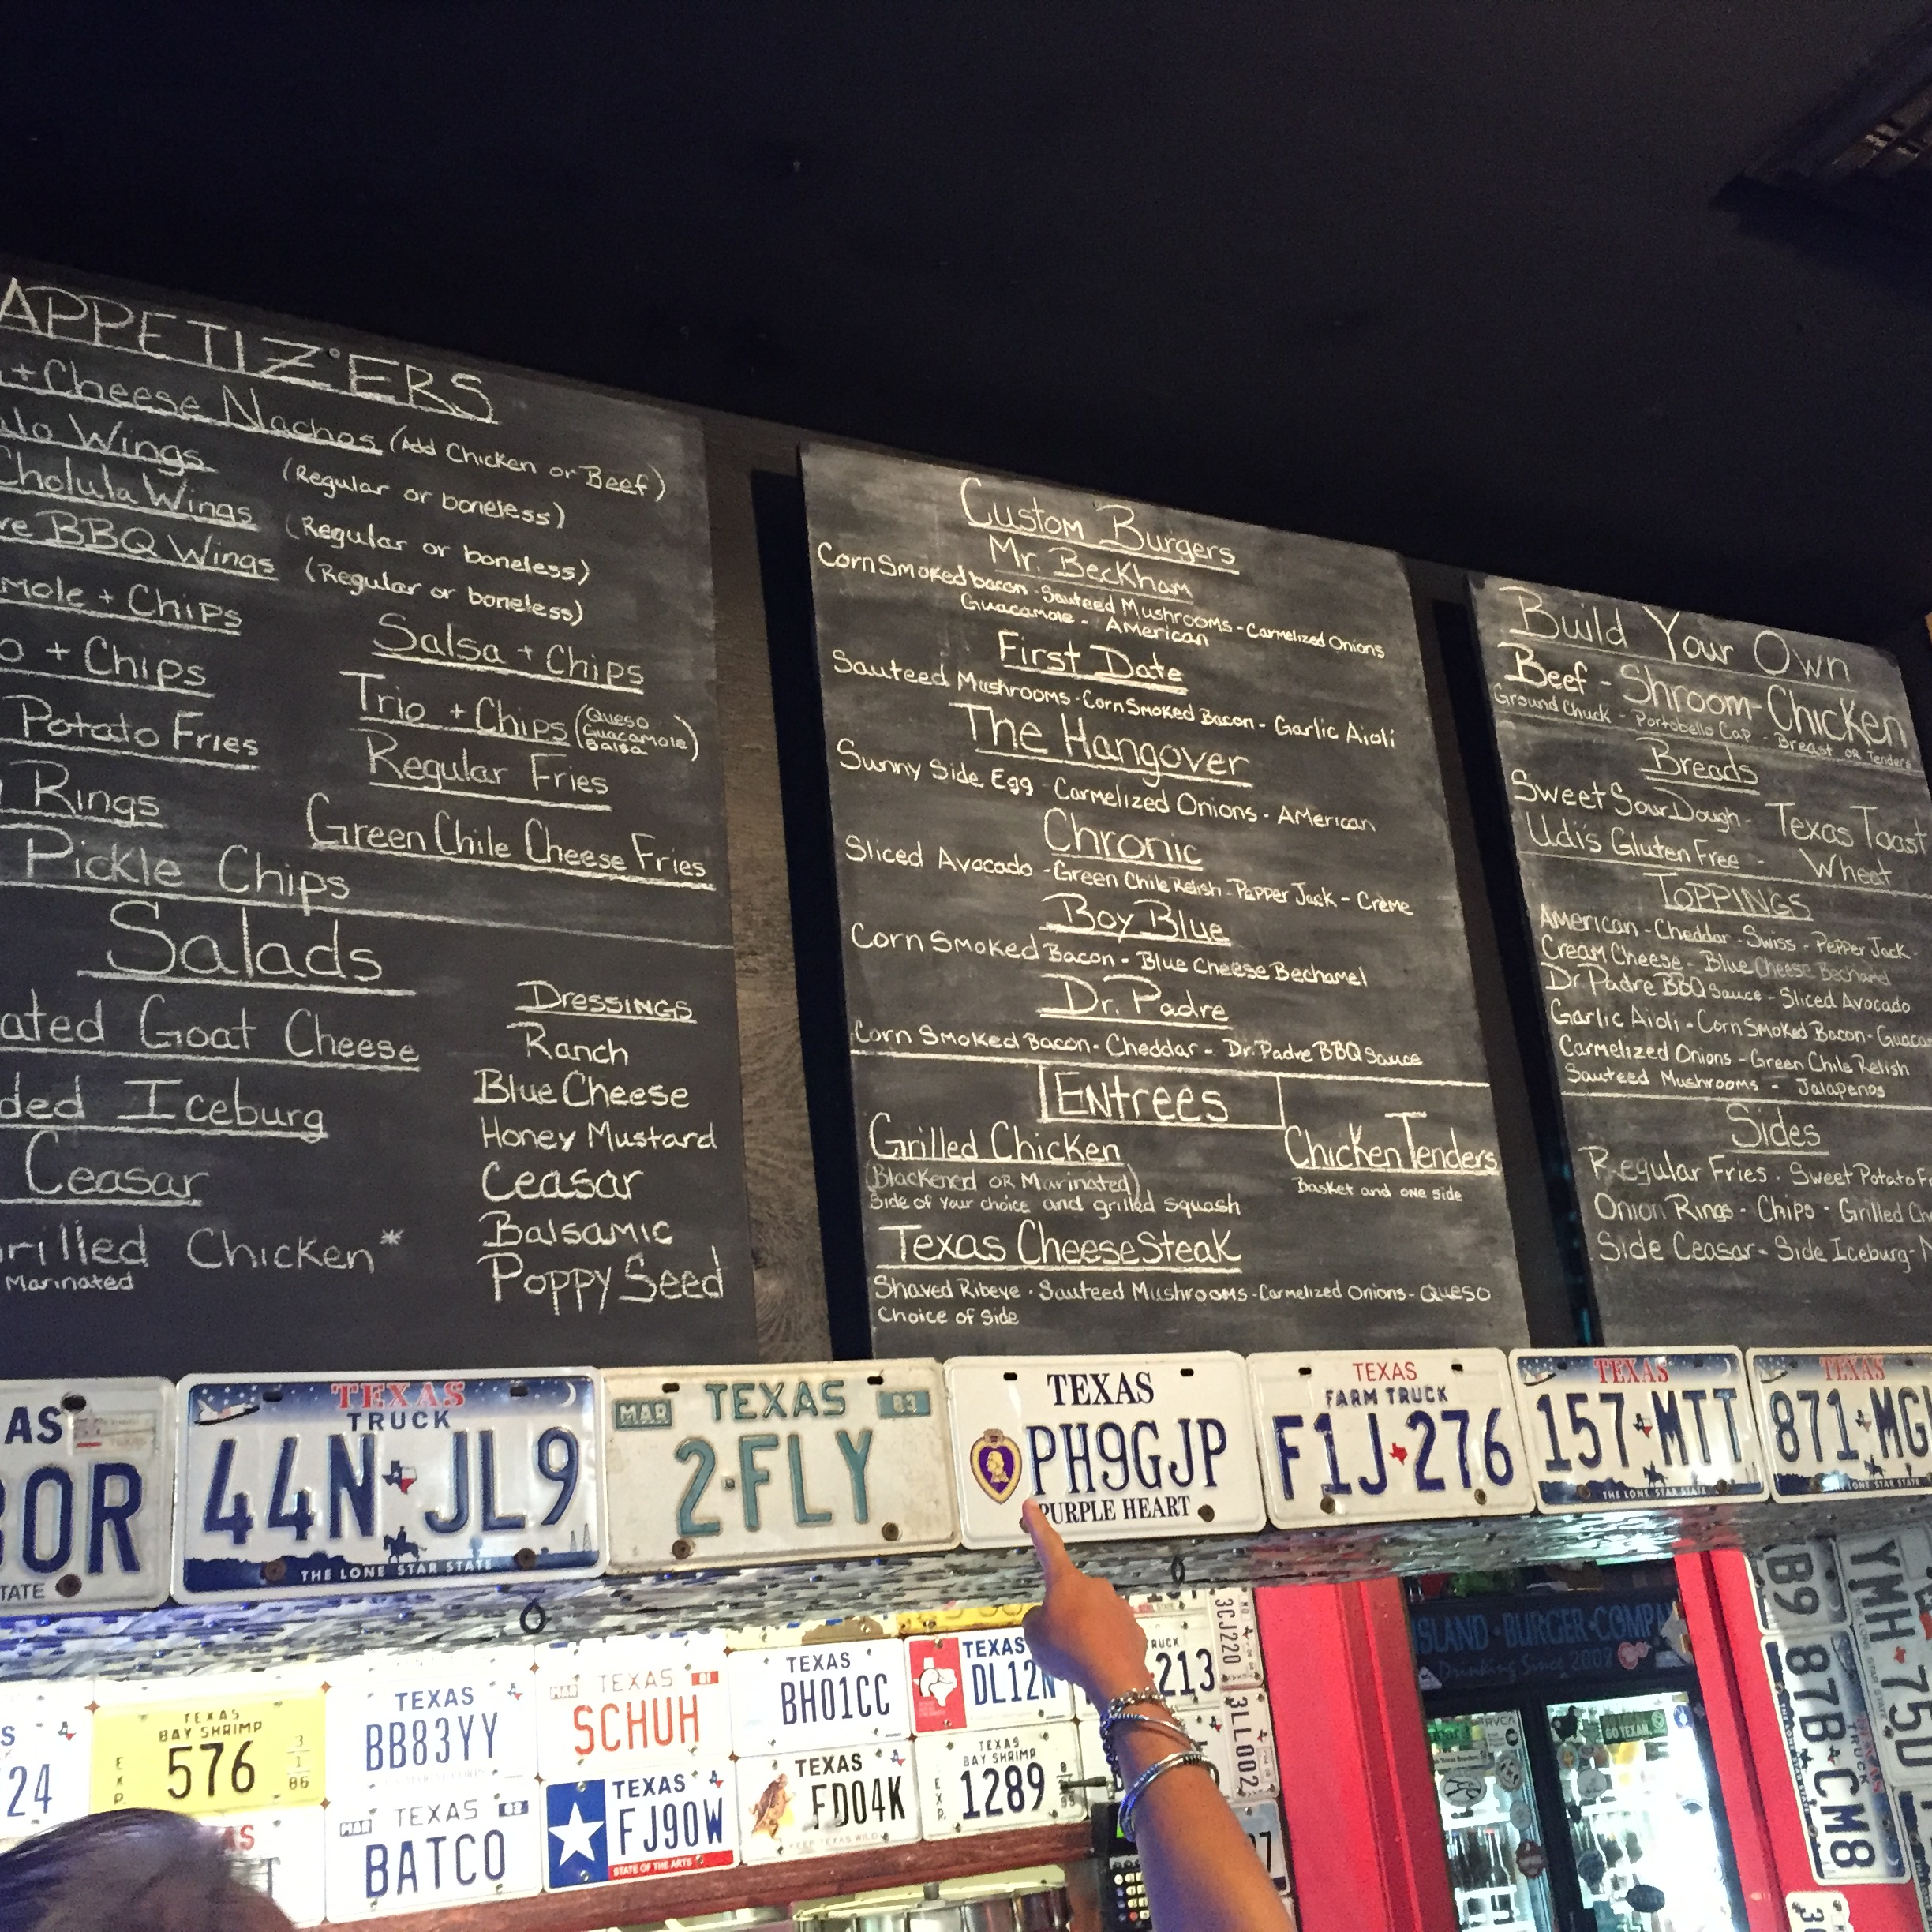 APPETIZERS
+ Cheese Nachos (Add Chicken or Beef)
Wings (Regular or boneless)
Cholula Wings (Regular or boneless)
BBQ Wings (Regular or boneless)
+ Chips
Salsa + Chips
+ Chips
Trio + Chips (Queso
Guacamole
Salsa)
Potato Fries
Regular Fries
Rings
Green Chile Cheese Fries
Pickle Chips
Salads
Goat Cheese
Iceburg
Ceasar
Chicken*
Marinated
Dressings
Ranch
Blue Cheese
Honey Mustard
Ceasar
Balsamic
Poppy Seed
Custom Burgers
Mr. Beckham
Corn Smoked bacon - Sauteed Mushrooms - Carmelized Onions
Guacamole - American
First Date
Sauteed Mushrooms - Corn Smoked Bacon - Garlic Aioli
The Hangover
Sunny Side Egg - Carmelized Onions - American
Chronic
Sliced Avocado - Green Chile Relish - Pepper Jack - Crème
Boy Blue
Corn Smoked Bacon - Blue Cheese Bechamel
Dr. Padre
Corn Smoked Bacon - Cheddar - Dr. Padre BBQ Sauce
Entrees
Grilled Chicken
(Blackened OR Marinated)
Side of your choice and grilled squash
Chicken Tenders
Basket and one side
Texas CheeseSteak
Shaved Ribeye - Sauteed Mushrooms - Carmelized Onions - Queso
Choice of Side
Build Your Own
Beef - Shroom - Chicken
Ground Chuck - Portobello Cap - Breast OR Tenders
Breads
Sweet Sour Dough - Texas Toast
Udi's Gluten Free - Wheat
TOPPINGS
American - Cheddar - Swiss - Pepper Jack -
Cream Cheese - Blue Cheese Bechamel
Dr Padre BBQ Sauce - Sliced Avocado
Garlic Aioli - Corn Smoked Bacon -
Carmelized Onions - Green Chile Relish
Sauteed Mushrooms - Jalapenos
Sides
Regular Fries - Sweet Potato
Onion Rings - Chips - Grilled
Side Ceasar - Side Iceburg -
TEXAS
TRUCK
44N JL9
THE LONE STAR STATE
MAR TEXAS 83
2·FLY
TEXAS
PH9GJP
PURPLE HEART
TEXAS
FARM TRUCK
F1J 276
TEXAS
157 MTT
THE LONE STAR STATE
TEXAS
871 MG
TEXAS
BAY SHRIMP
576
EXP.
3
1
86
TEXAS
BB83YY
MAR TEXAS 81
SCHUH
TEXAS
BH01CC
TEXAS
DL12N
TRUCK
213
3CJ220
24
TEXAS
BATCO
TEXAS
FJ90W
STATE OF THE ARTS
TEXAS
FD04K
KEEP TEXAS WILD
TEXAS
BAY SHRIMP
EXP.
1289
3LL002
ISLAND·BURGER·COMP
Drinking Since 2009
RVCA
GO TEXAN.
B9
YMH 75D
87B CM8
TRUCK